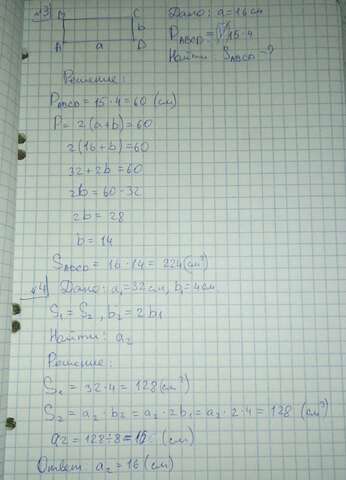 №3 B C Дано: a=16см
b P ABCD = 15·4
A a D Найти: S ABCD - ?
Решение:
P ABCD = 15·4=60 (см)
P= 2(a+b)=60
2(16+b)=60
32+2b=60
2b=60-32
2b=28
b=14
S ABCD = 16·14= 224(см²)
№4 Дано: a₁=32см, b₁=4см
S₁=S₂, b₂=2b₁
Найти: a₂
Решение:
S₁ = 32·4=128(см²)
S₂=a₂·b₂=a₂·2b₁=a₂·2·4=128 (см²)
a₂=128÷8=16 (см)
Ответ: a₂=16(см)